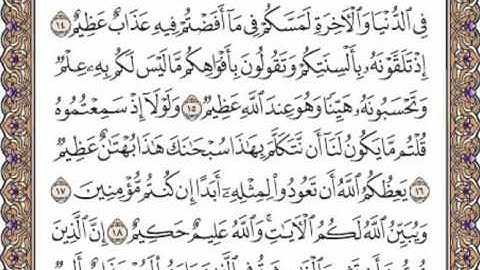 فِى ٱلدُّنْيَا وَٱلْأَخِرَةِ لَمَسَّكُمْ فِى مَآ أَفَضْتُمْ فِيهِ عَذَابٌ عَظِيمٌ ١٤
إِذْ تَلَقَّوْنَهُۥ بِأَلْسِنَتِكُمْ وَتَقُولُونَ بِأَفْوَاهِكُم مَّا لَيْسَ لَكُم بِهِۦ عِلْمٌ
وَتَحْسَبُونَهُۥ هَيِّنًا وَهُوَ عِندَ ٱللَّهِ عَظِيمٌ ١٥ وَلَوْلَآ إِذْ سَمِعْتُمُوهُ
قُلْتُم مَّا يَكُونُ لَنَآ أَن نَّتَكَلَّمَ بِهَٰذَا سُبْحَٰنَكَ هَٰذَا بُهْتَٰنٌ عَظِيمٌ
١٦ يَعِظُكُمُ ٱللَّهُ أَن تَعُودُوا۟ لِمِثْلِهِۦٓ أَبَدًا إِن كُنتُم مُّؤْمِنِينَ ١٧
وَيُبَيِّنُ ٱللَّهُ لَكُمُ ٱلْأَيَٰتِ وَٱللَّهُ عَلِيمٌ حَكِيمٌ ١٨ إِنَّ ٱلَّذِينَ